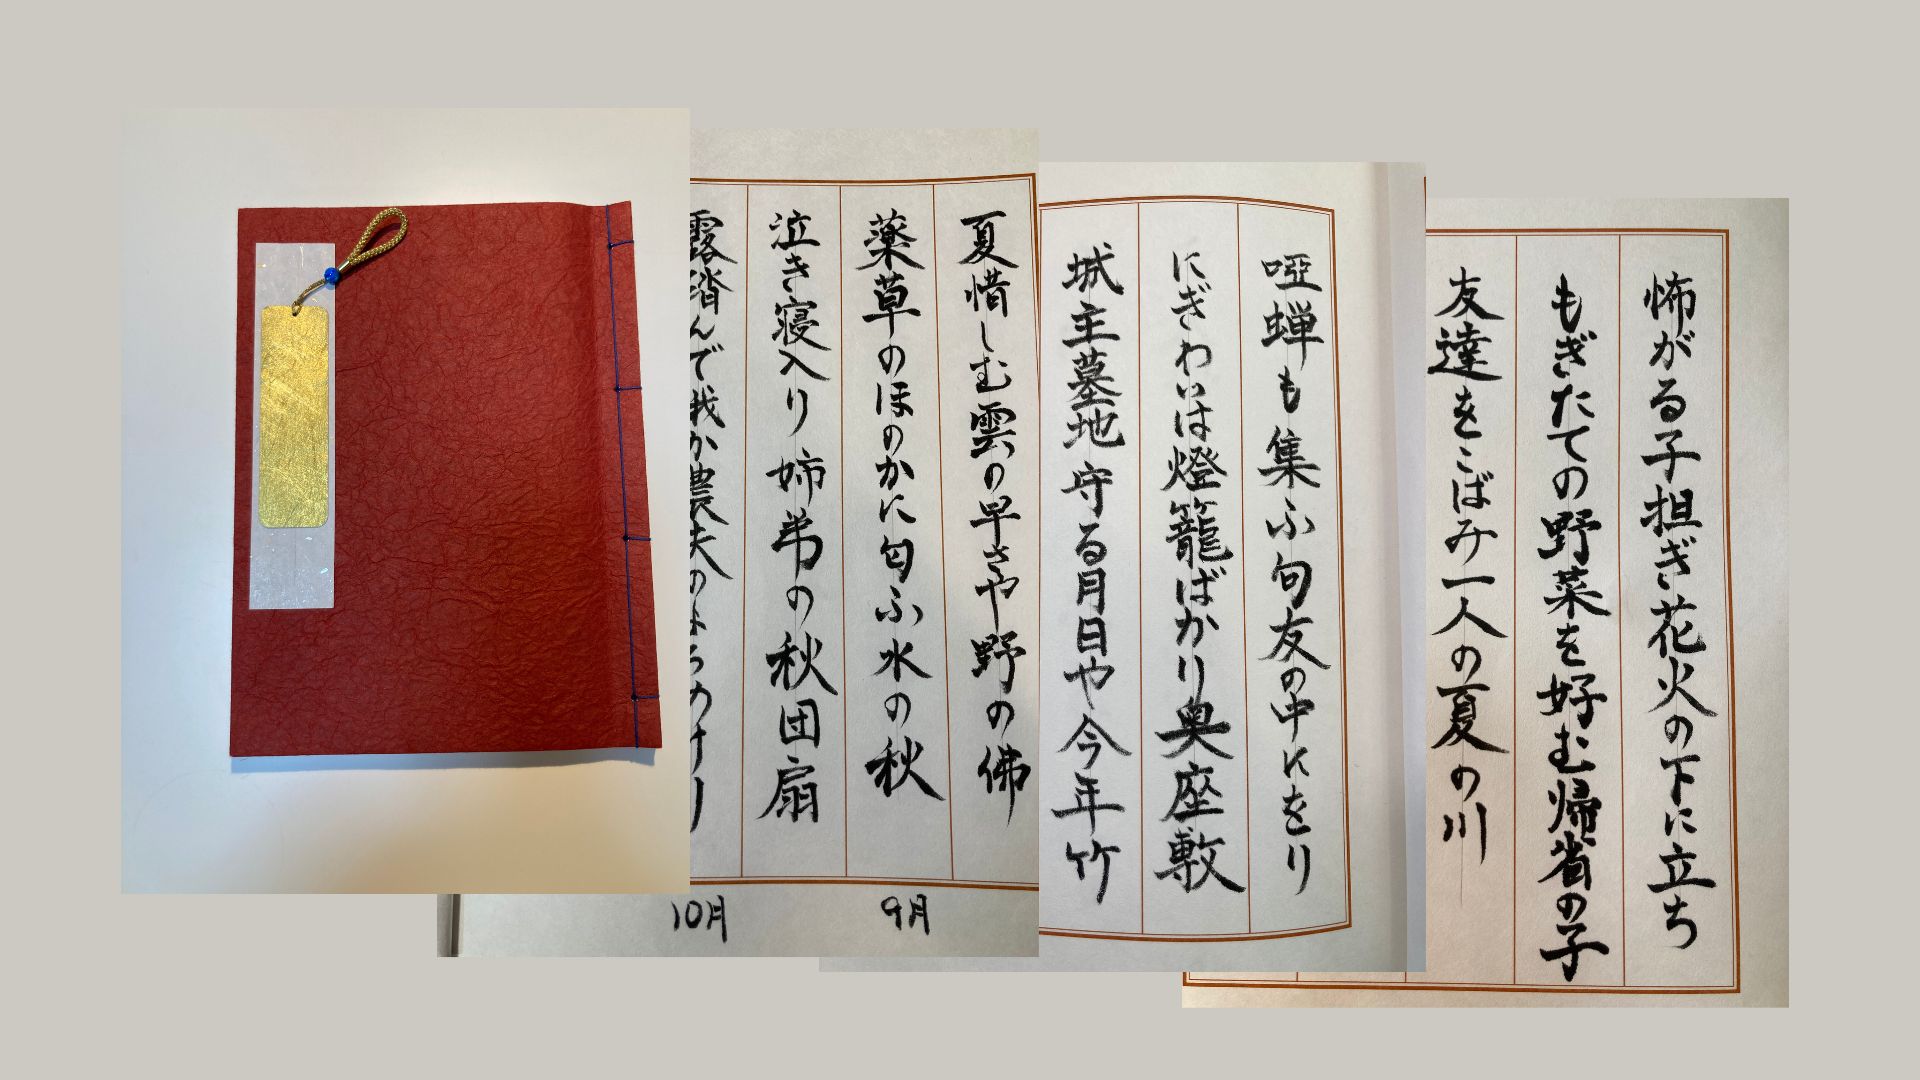 怖がる子担ぎ花火の下に立ち
もぎたての野菜を好む帰省の子
友達をこばみ一人の夏の川
啞蝉も集ふ句友の中にをり
にぎわいは燈籠ばかり奥座敷
城主墓地守る月日や今年竹
夏惜しむ雲の早さや野の佛
薬草のほのかに匂ふ水の秋
泣き寝入り姉弟の秋団扇
露踏んで我か農夫のよろめけり
9月
10月